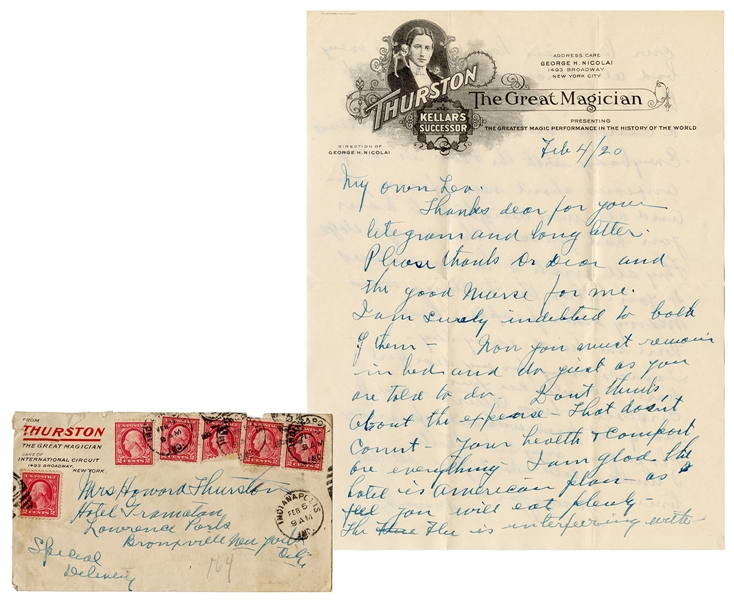 ADDRESS CARE
GEORGE H. NICOLAI
1493 BROADWAY
NEW YORK CITY
THURSTON
The Great Magician
KELLAR'S
SUCCESSOR
PRESENTING
THE GREATEST MAGIC PERFORMANCE IN THE HISTORY OF THE WORLD
DIRECTION OF
GEORGE H. NICOLAI
Feb 4/20
My own Leo.
Thanks dear for your
telegram and long letter.
Please thank Dr Dear and
the good Nurse for me.
I am surely indebted to both
of them - Now you must remain
in bed and do just as you
are told to do. Don't think
about the expense - that doesn't
count - Your health & comfort
are everything I am glad the
hotel is American plan - as
you will eat plenty -
The Flu is interfering with
FROM
THURSTON
THE GREAT MAGICIAN
CARE OF
INTERNATIONAL CIRCUIT
1493 BROADWAY,
NEW YORK
Mrs Howard Thurston
Hotel Gramatan
Lawrence Park
Bronxville New York
Special
Delivery
169
INDIANAPOLIS
FEB 5
9 AM
IND.
2 CENTS 2
2 CENTS 2
2 CENTS 2
2 CENTS 2
2 CENTS 2
2 CENTS 2